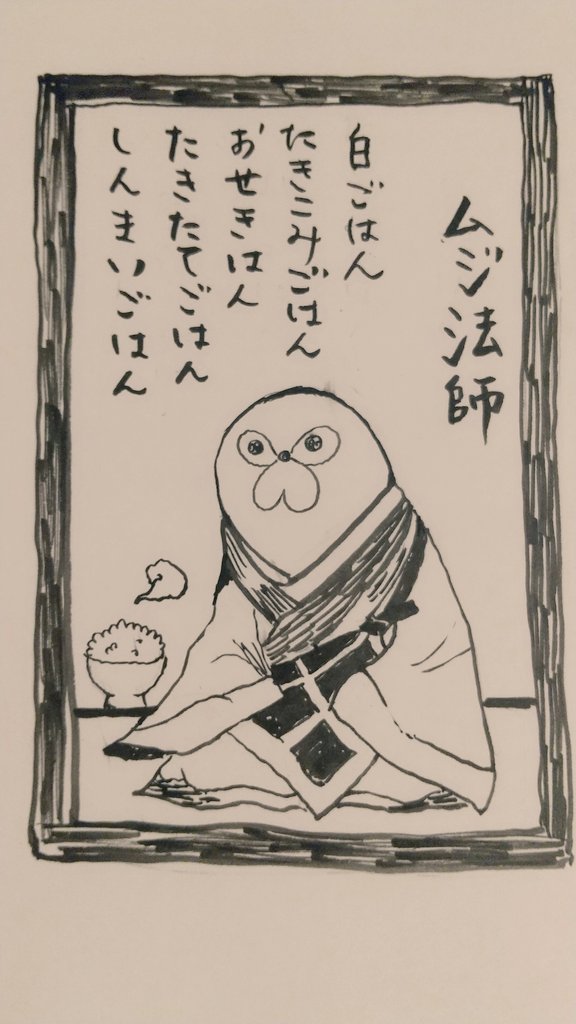 ムジ法師
白ごはん
たきこみごはん
おせきはん
たきたてごはん
しんまいごはん